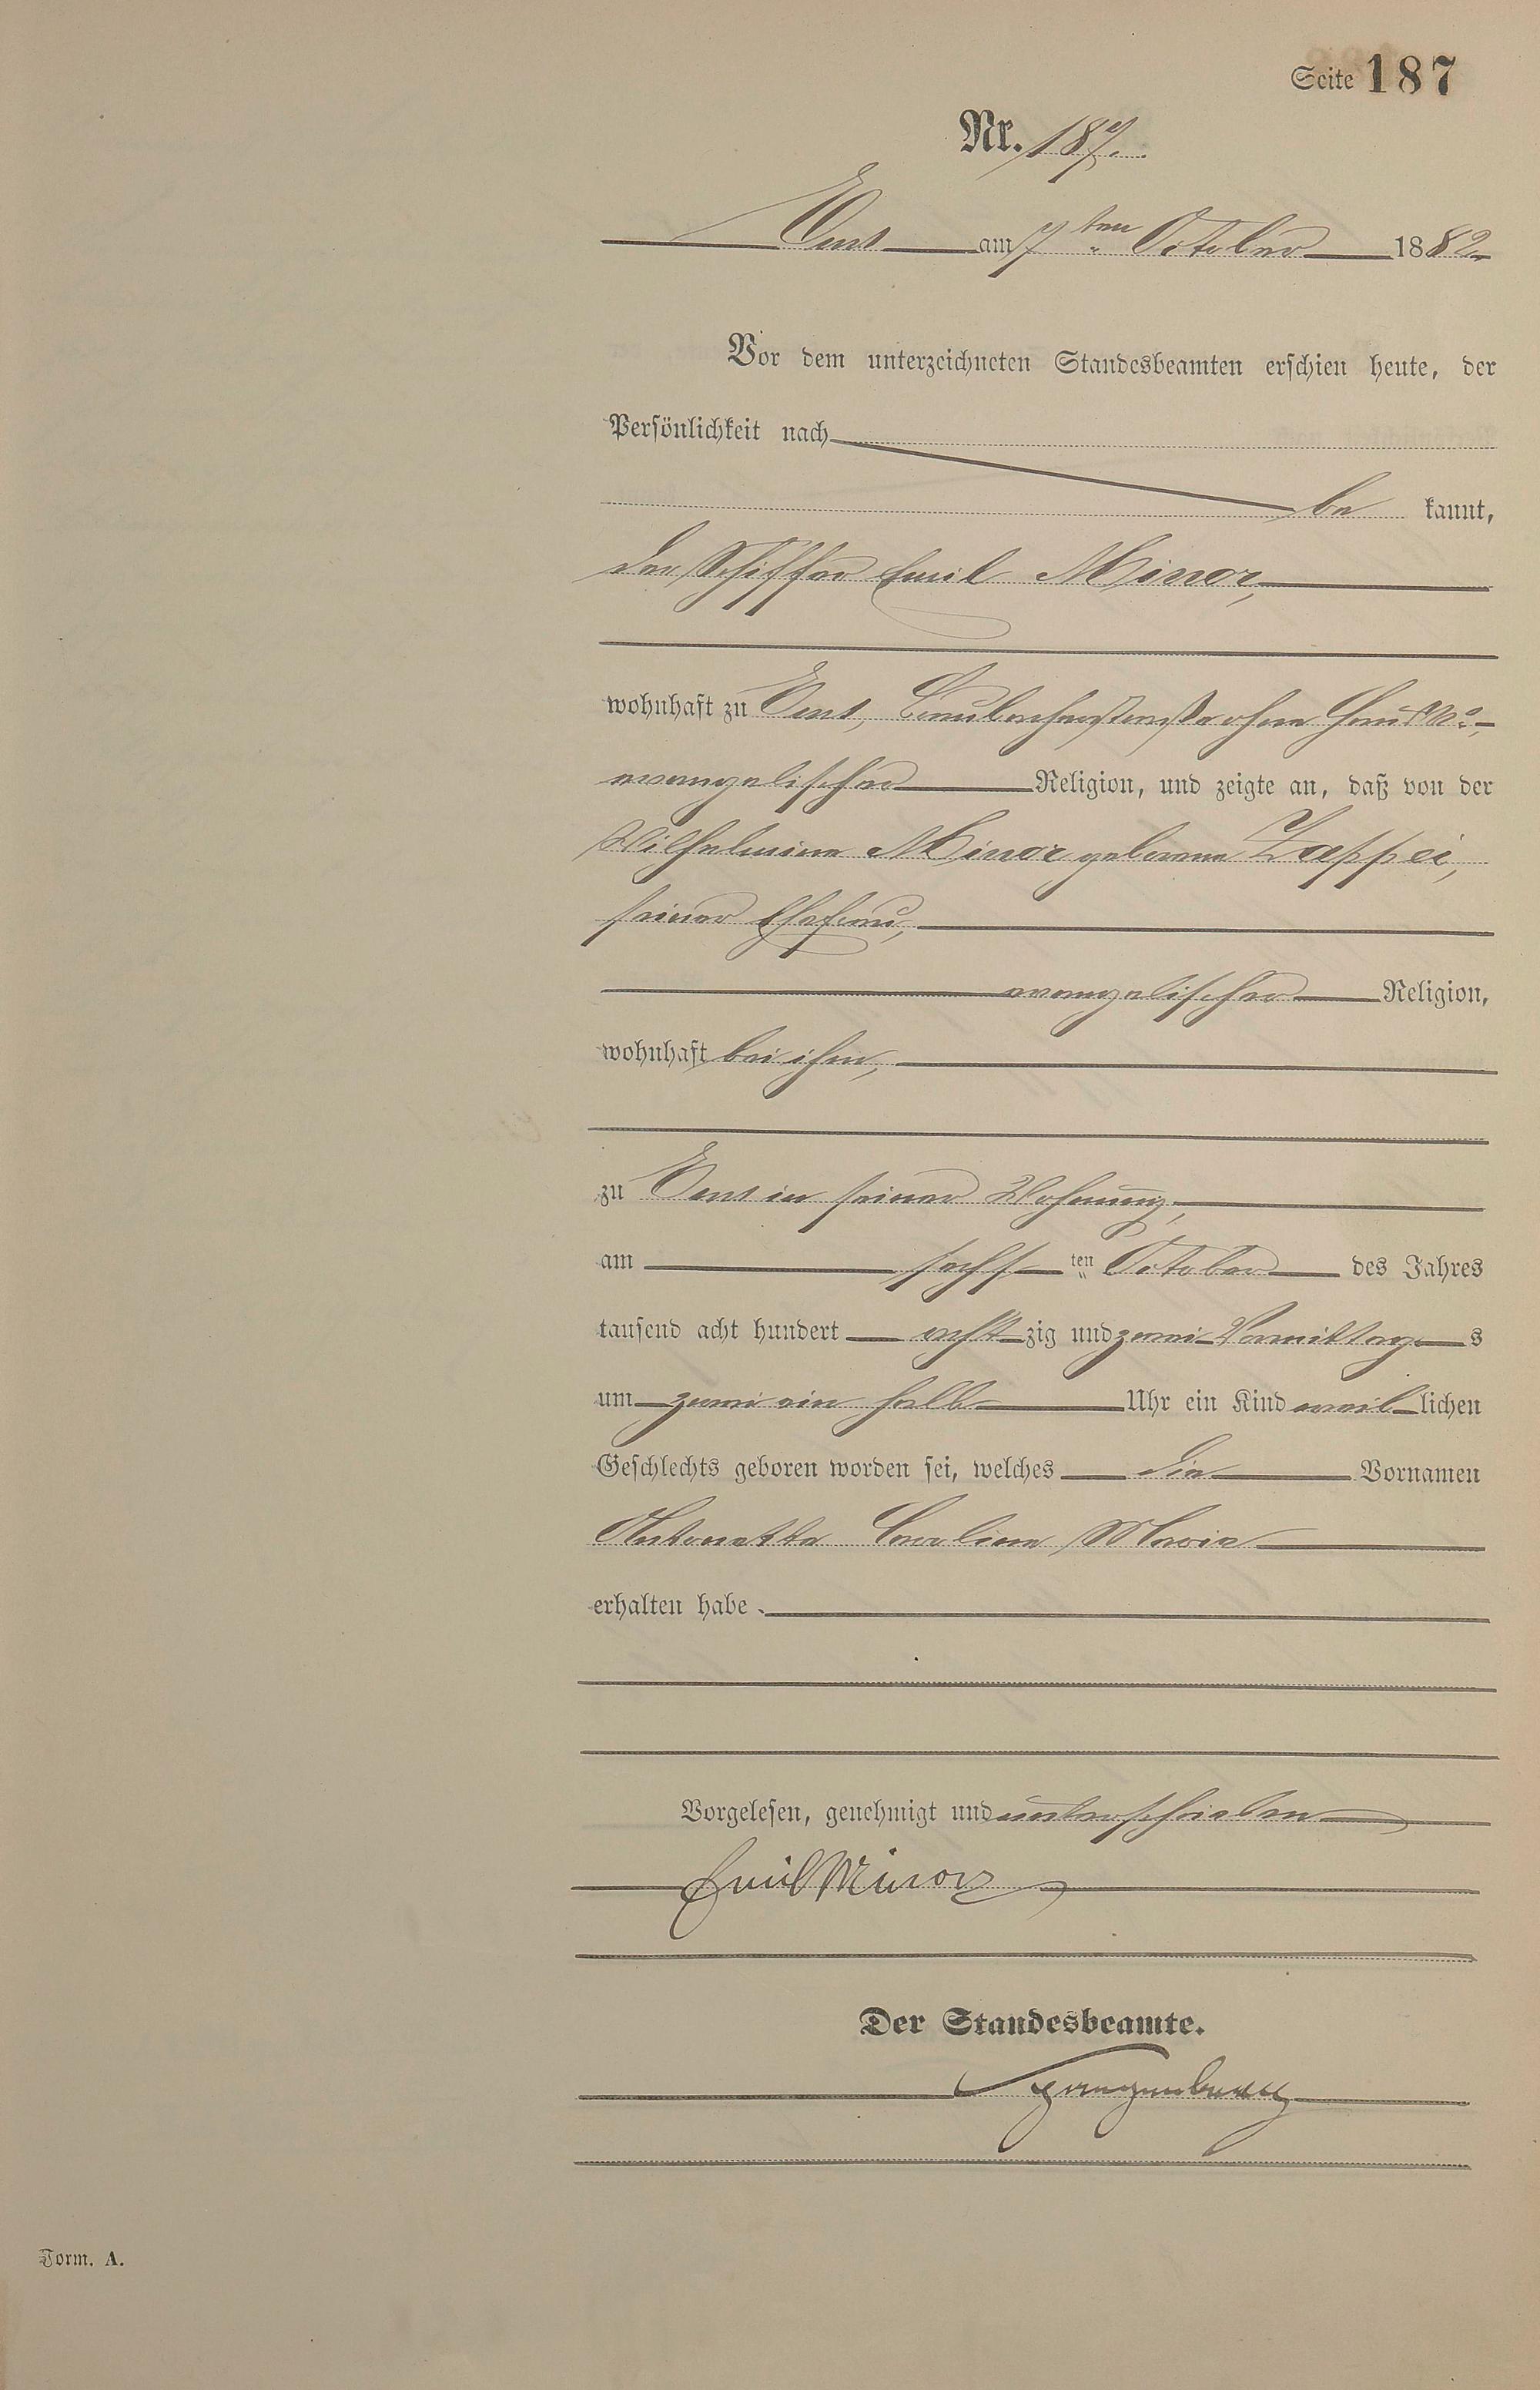 Seite 187
Nr. 187.
Ems am 7ten October 1882
Vor dem unterzeichneten Standesbeamten erschien heute, der
Persönlichkeit nach
be kannt,
der Schiffer Emil Minor,
wohnhaft zu Ems, ohne Haus No,
evangelischer Religion, und zeigte an, daß von der
Wilhelmine Minor geborene Zappei,
seiner Ehefrau,
evangelischer Religion,
wohnhaft bei ihm,
zu Ems in seiner Wohnung,
am sechsten October des Jahres
tausend acht hundert achtzig und zwei Vormittags
um zwei ein halb Uhr ein Kind weiblichen
Geschlechts geboren worden sei, welches die Vornamen
Antonette Caroline Maria
erhalten habe.
Vorgelesen, genehmigt und unterschrieben
Emil Minor
Der Standesbeamte.
Spangenberg
Form. A.